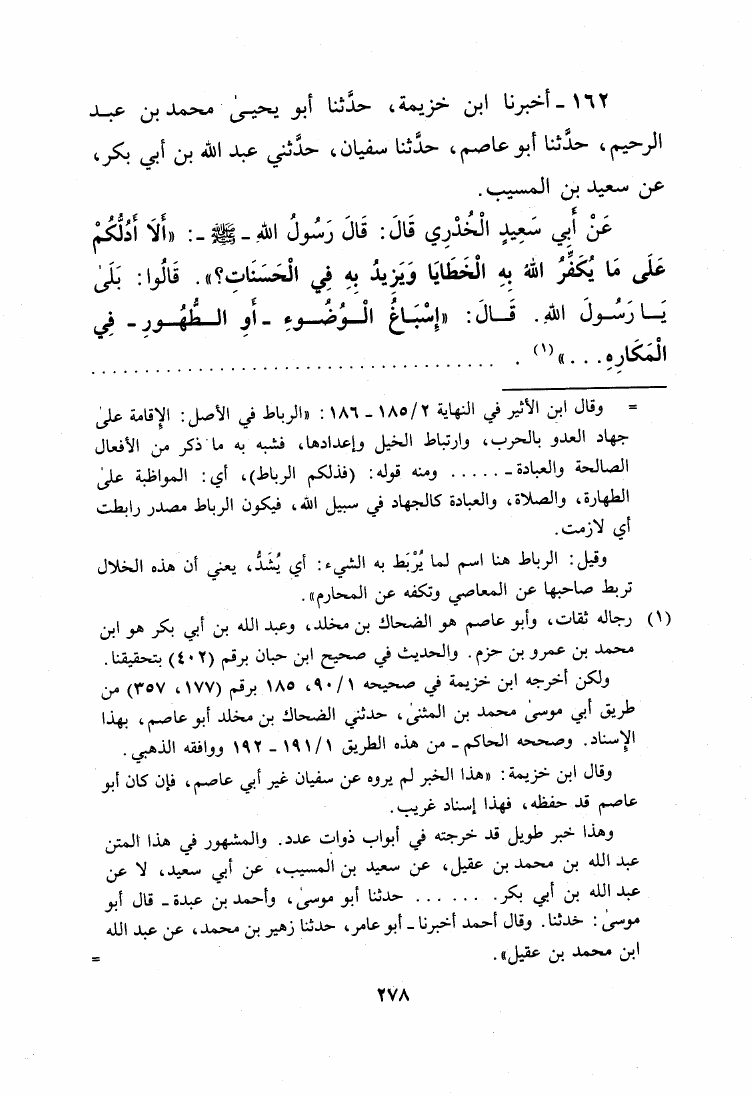 ١٦٢ - أخبرنا ابن خزيمة، حدَّثنا أبو يحيىٰ محمد بن عبد
الرحيم، حدَّثنا أبو عاصم، حدَّثنا سفيان، حدَّثني عبد الله بن أبي بكر،
عن سعيد بن المسيب.
عَنْ أَبِي سَعِيدٍ الْخُدْرِي قَالَ: قَالَ رَسُولُ اللهِ - ﷺ -: «أَلَا أَدُلُّكُمْ
عَلَى مَا يُكَفِّرُ اللهُ بِهِ الْخَطَايَا وَيَزِيدُ بِهِ فِي الْحَسَنَاتِ؟». قَالُوا: بَلَىٰ
يَا رَسُولَ اللهِ. قَالَ: «إِسْبَاغُ الْوُضُوءِ - أَوِ الطُّهُورِ - فِي
الْمَكَارِهِ...»(١) . ......................................
= وقال ابن الأثير في النهاية ١٨٥/٢ - ١٨٦: «الرباط في الأصل: الإقامة علىٰ
جهاد العدو بالحرب، وارتباط الخيل وإعدادها، فشبه به ما ذكر من الأفعال
الصالحة والعبادة - ..... ومنه قوله: (فذلكم الرباط)، أي: المواظبة علىٰ
الطهارة، والصلاة، والعبادة كالجهاد في سبيل الله، فيكون الرباط مصدر رابطت
أي لازمت.
وقيل: الرباط هنا اسم لما يُرْبَط به الشيء: أي يُشَدُّ، يعني أن هذه الخلال
تربط صاحبها عن المعاصي وتكفه عن المحارم».
(١) رجاله ثقات، وأبو عاصم هو الضحاك بن مخلد، وعبد الله بن أبي بكر هو ابن
محمد بن عمرو بن حزم. والحديث في صحيح ابن حبان برقم (٤٠٢) بتحقيقنا.
ولكن أخرجه ابن خزيمة في صحيحه ٩٠/١، ١٨٥ برقم (١٧٧، ٣٥٧) من
طريق أبي موسىٰ محمد بن المثنىٰ، حدثني الضحاك بن مخلد أبو عاصم، بهذا
الإسناد. وصححه الحاكم - من هذه الطريق ١٩١/١ - ١٩٢ ووافقه الذهبي.
وقال ابن خزيمة: «هذا الخبر لم يروه عن سفيان غير أبي عاصم، فإن كان أبو
عاصم قد حفظه، فهذا إسناد غريب.
وهذا خبر طويل قد خرجته في أبواب ذوات عدد. والمشهور في هذا المتن
عبد الله بن محمد بن عقيل، عن سعيد بن المسيب، عن أبي سعيد، لا عن
عبد الله بن أبي بكر. ...... حدثنا أبو موسىٰ، وأحمد بن عبدة - قال أبو
موسىٰ: حدثنا. وقال أحمد أخبرنا - أبو عامر، حدثنا زهير بن محمد، عن عبد الله
ابن محمد بن عقيل». =
٢٧٨